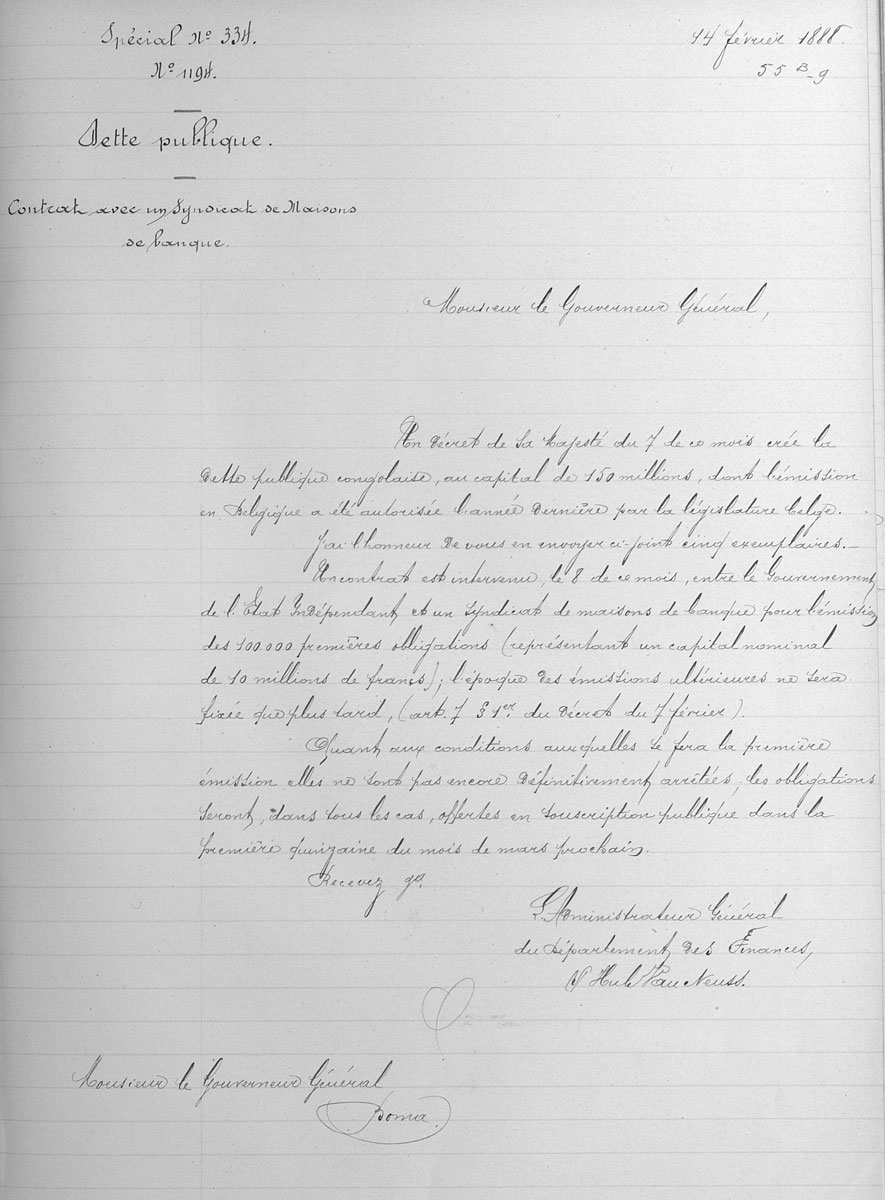 Spécial Nº 334.
14 février 1888.
Nº 1194.
55 B-9
Dette publique.
Contrat avec un Syndicat de Maisons
de banque.
Monsieur le Gouverneur Général,
Un Décret de Sa Majesté du 7 de ce mois crée la
Dette publique congolaise, au capital de 150 millions, dont l'émission
en Belgique a été autorisée l'année dernière par la législature belge.
J'ai l'honneur de vous en envoyer ci-joint cinq exemplaires.-
Un contrat est intervenu, le 8 de ce mois, entre le Gouvernement
de l'Etat Indépendant et un Syndicat de maisons de banque pour l'émission
des 100.000 premières obligations (représentant un capital nominal
de 10 millions de francs); l'époque des émissions ultérieures ne sera
fixée que plus tard, (art. 7 § 1er. du Décret du 7 février).
Quant aux conditions auxquelles se fera la première
émission elles ne sont pas encore définitivement arrêtées; les obligations
seront, dans tous les cas, offertes en souscription publique dans la
première quinzaine du mois de mars prochain.
Recevez
L'Administrateur Général
du Département des Finances,
Hub Van Neuss.
Monsieur le Gouverneur Général
Boma.